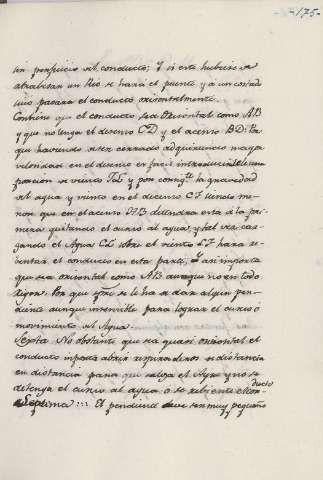 -175-
un perjuicio del conducto; Y si este hubiese de
atrabesar un Rio se hará el puente y a un costado
suio pasara el conducto orisontalmente.
Conbiene que el conducto sea Orisontal como AB
y que no tenga el decenso CD y el acenso BD: Por
que haviendo de ser cerrado adquiriendo maior
velosidad en el decenso es facil introducirse
porcion de viento y por la gravedad
del agua y viento en el decenso CF siendo me-
nor que en el acenso AB detendra esta a la pri-
mera quitando el curso al agua, y tal vez car-
gando el Agua CE sobre el viento EF hara re-
bentar el conducto en esta parte, Y asi importa
que sea orisontal como AB aunque no en todo
rigor. Por que siempre se le ha de dar algun pen-
diente aunque insencible para lograr el curso o
movimiento del Agua.
Sexta. No obstante que sea quasi orisontal el
conducto importa abrir respiraderos de distancia
en distancia para que salga el Ayre y no se
detenga el curso al agua o se rebiente el con-
ducto
Septima: El pendiente deve ser muy pequeño